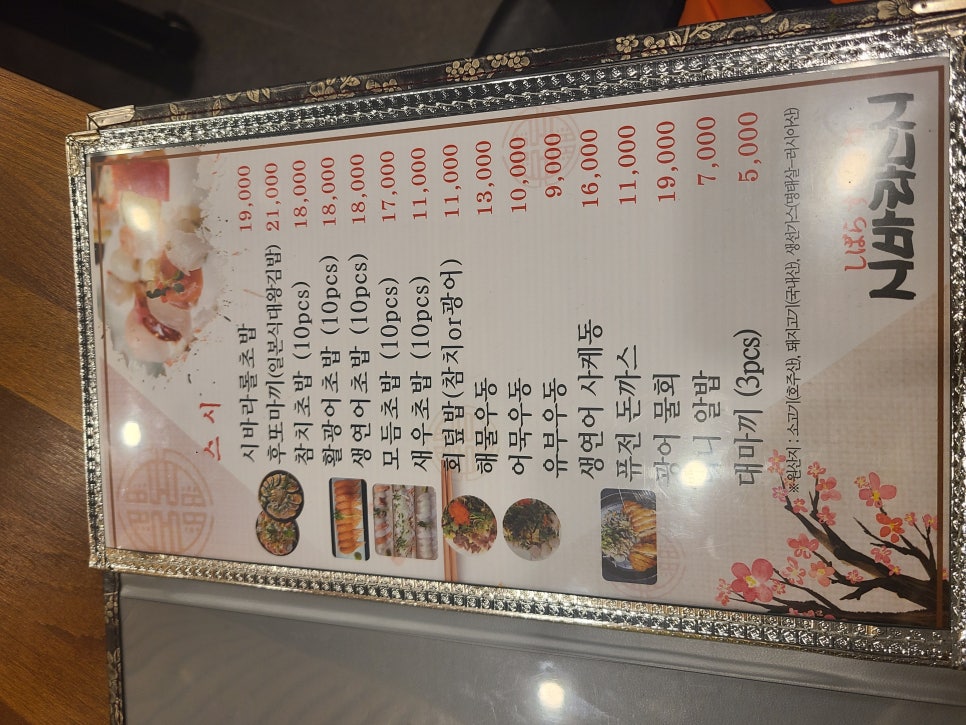 스시
시바라롤초밥 19,000
후포마끼(일본식대왕김밥) 21,000
참치초밥 (10pcs) 18,000
활광어초밥 (10pcs) 18,000
생연어초밥 (10pcs) 18,000
모듬초밥 (10pcs) 17,000
새우초밥 (10pcs) 11,000
회덮밥(참치or광어) 11,000
해물우동 13,000
어묵우동 10,000
유부우동 9,000
생연어 사케동 16,000
퓨전 돈까스 11,000
광어 물회 19,000
니 알밥 7,000
대마끼 (3pcs) 5,000
※원산지 : 소고기(호주산), 돼지고기(국내산), 생선가스(명태살-러시아산)
しばら
시바라스시